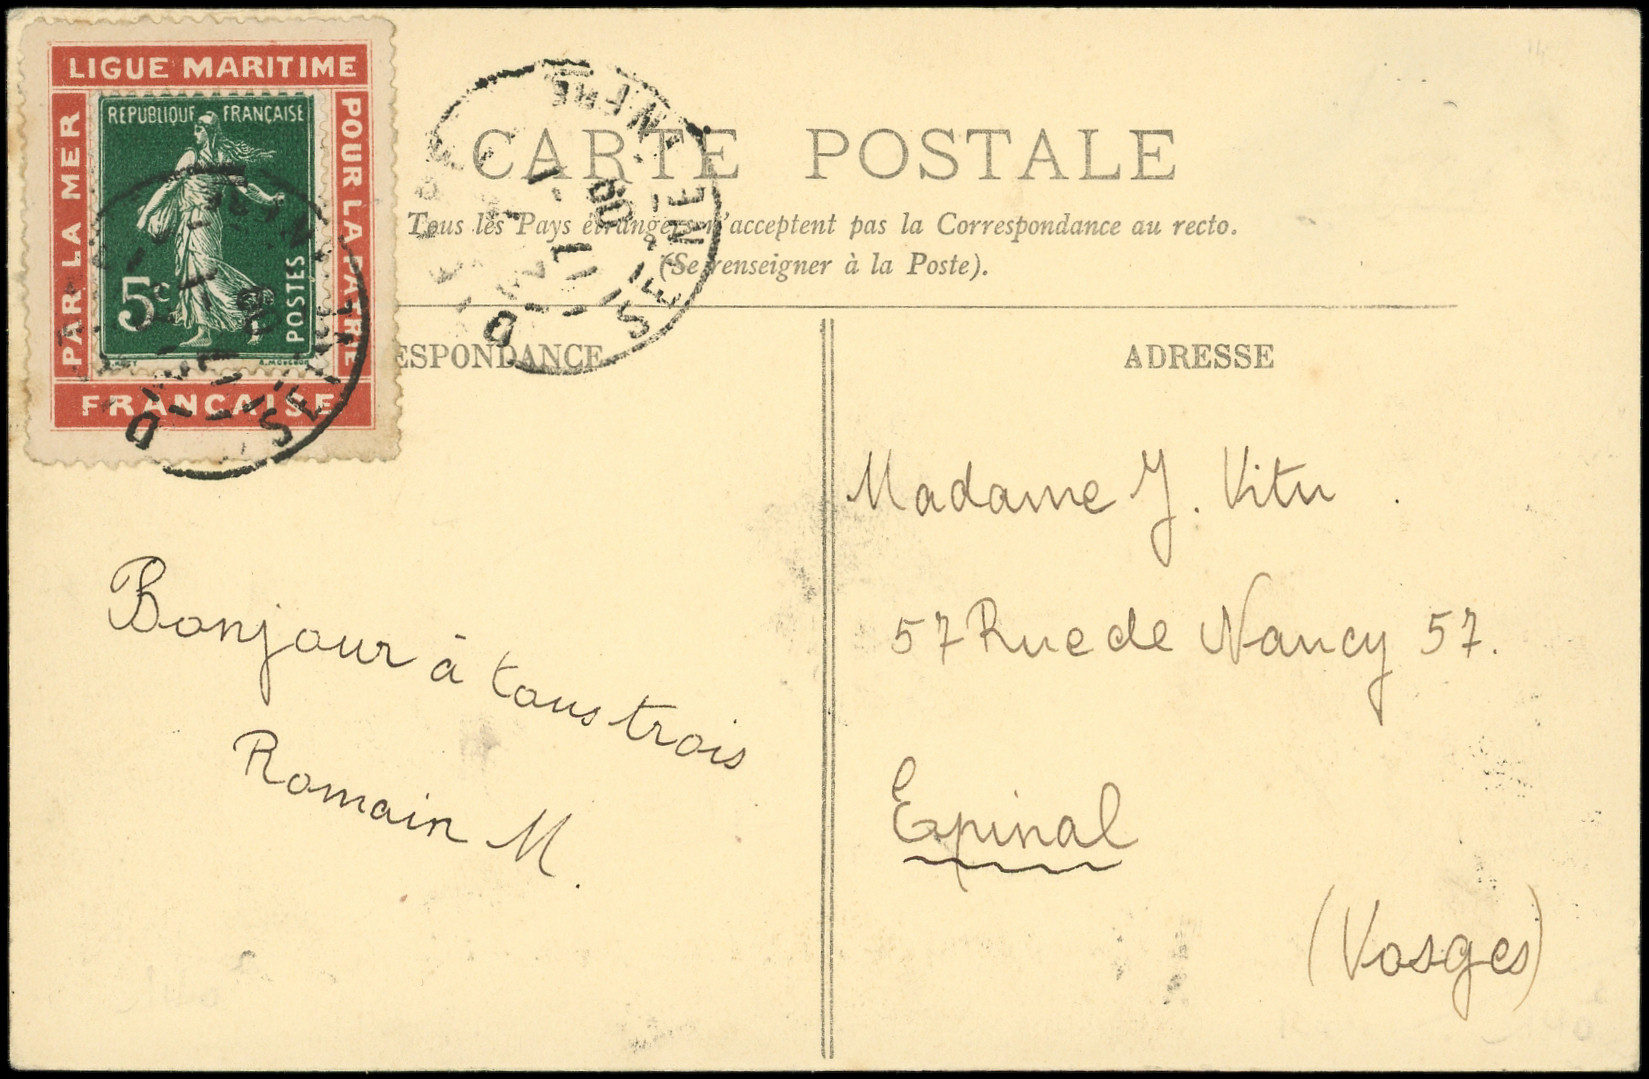 LIGUE MARITIME
PAR LA MER
POUR LA PATRIE
FRANÇAISE
REPUBLIQUE FRANÇAISE
5c
POSTES
INFRE
SEINE
CARTE POSTALE
Tous les Pays étrangers n'acceptent pas la Correspondance au recto.
(Se renseigner à la Poste).
ESPONDANCE
ADRESSE
Madame J. Vitu
57 Rue de Nancy 57.
Epinal
(Vosges)
Bonjour à tous trois
Romain M.